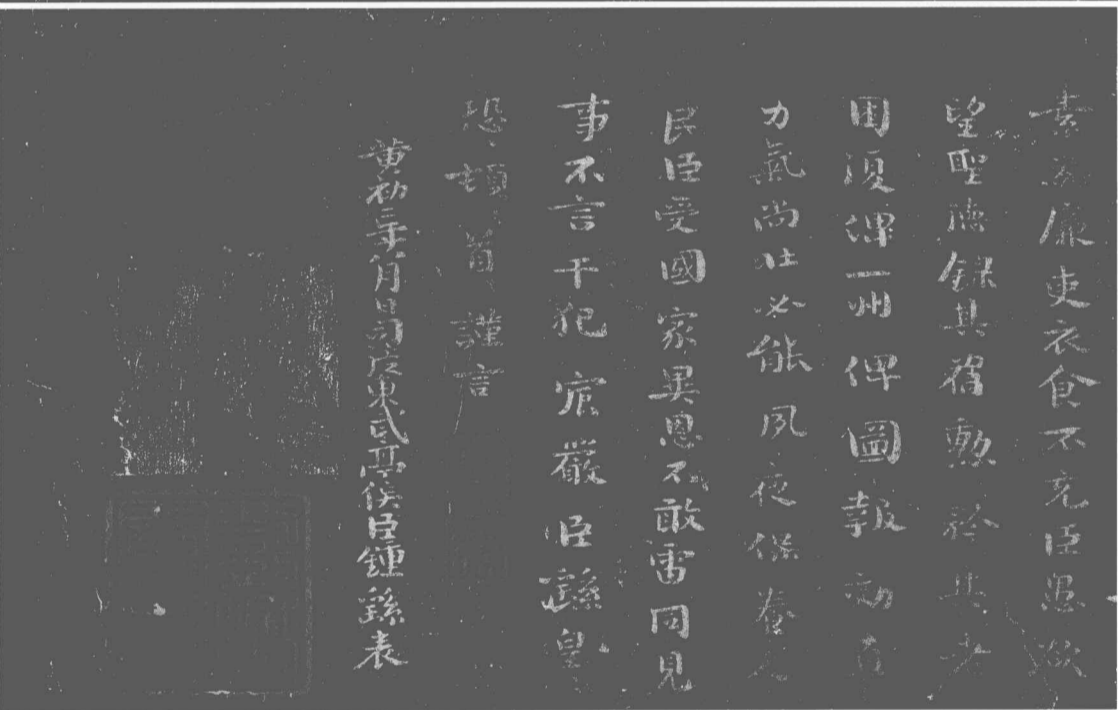 素為廉吏衣食不充臣愚欲
望聖德錄其舊勳矜其老
困復俾一州俾圖報効直
力氣尚壯必能夙夜保養人
民臣受國家異恩不敢雷同見
事不言干犯宸嚴臣繇皇
恐頓首謹言
黃初二年八月日司徒東武亭侯臣鍾繇表